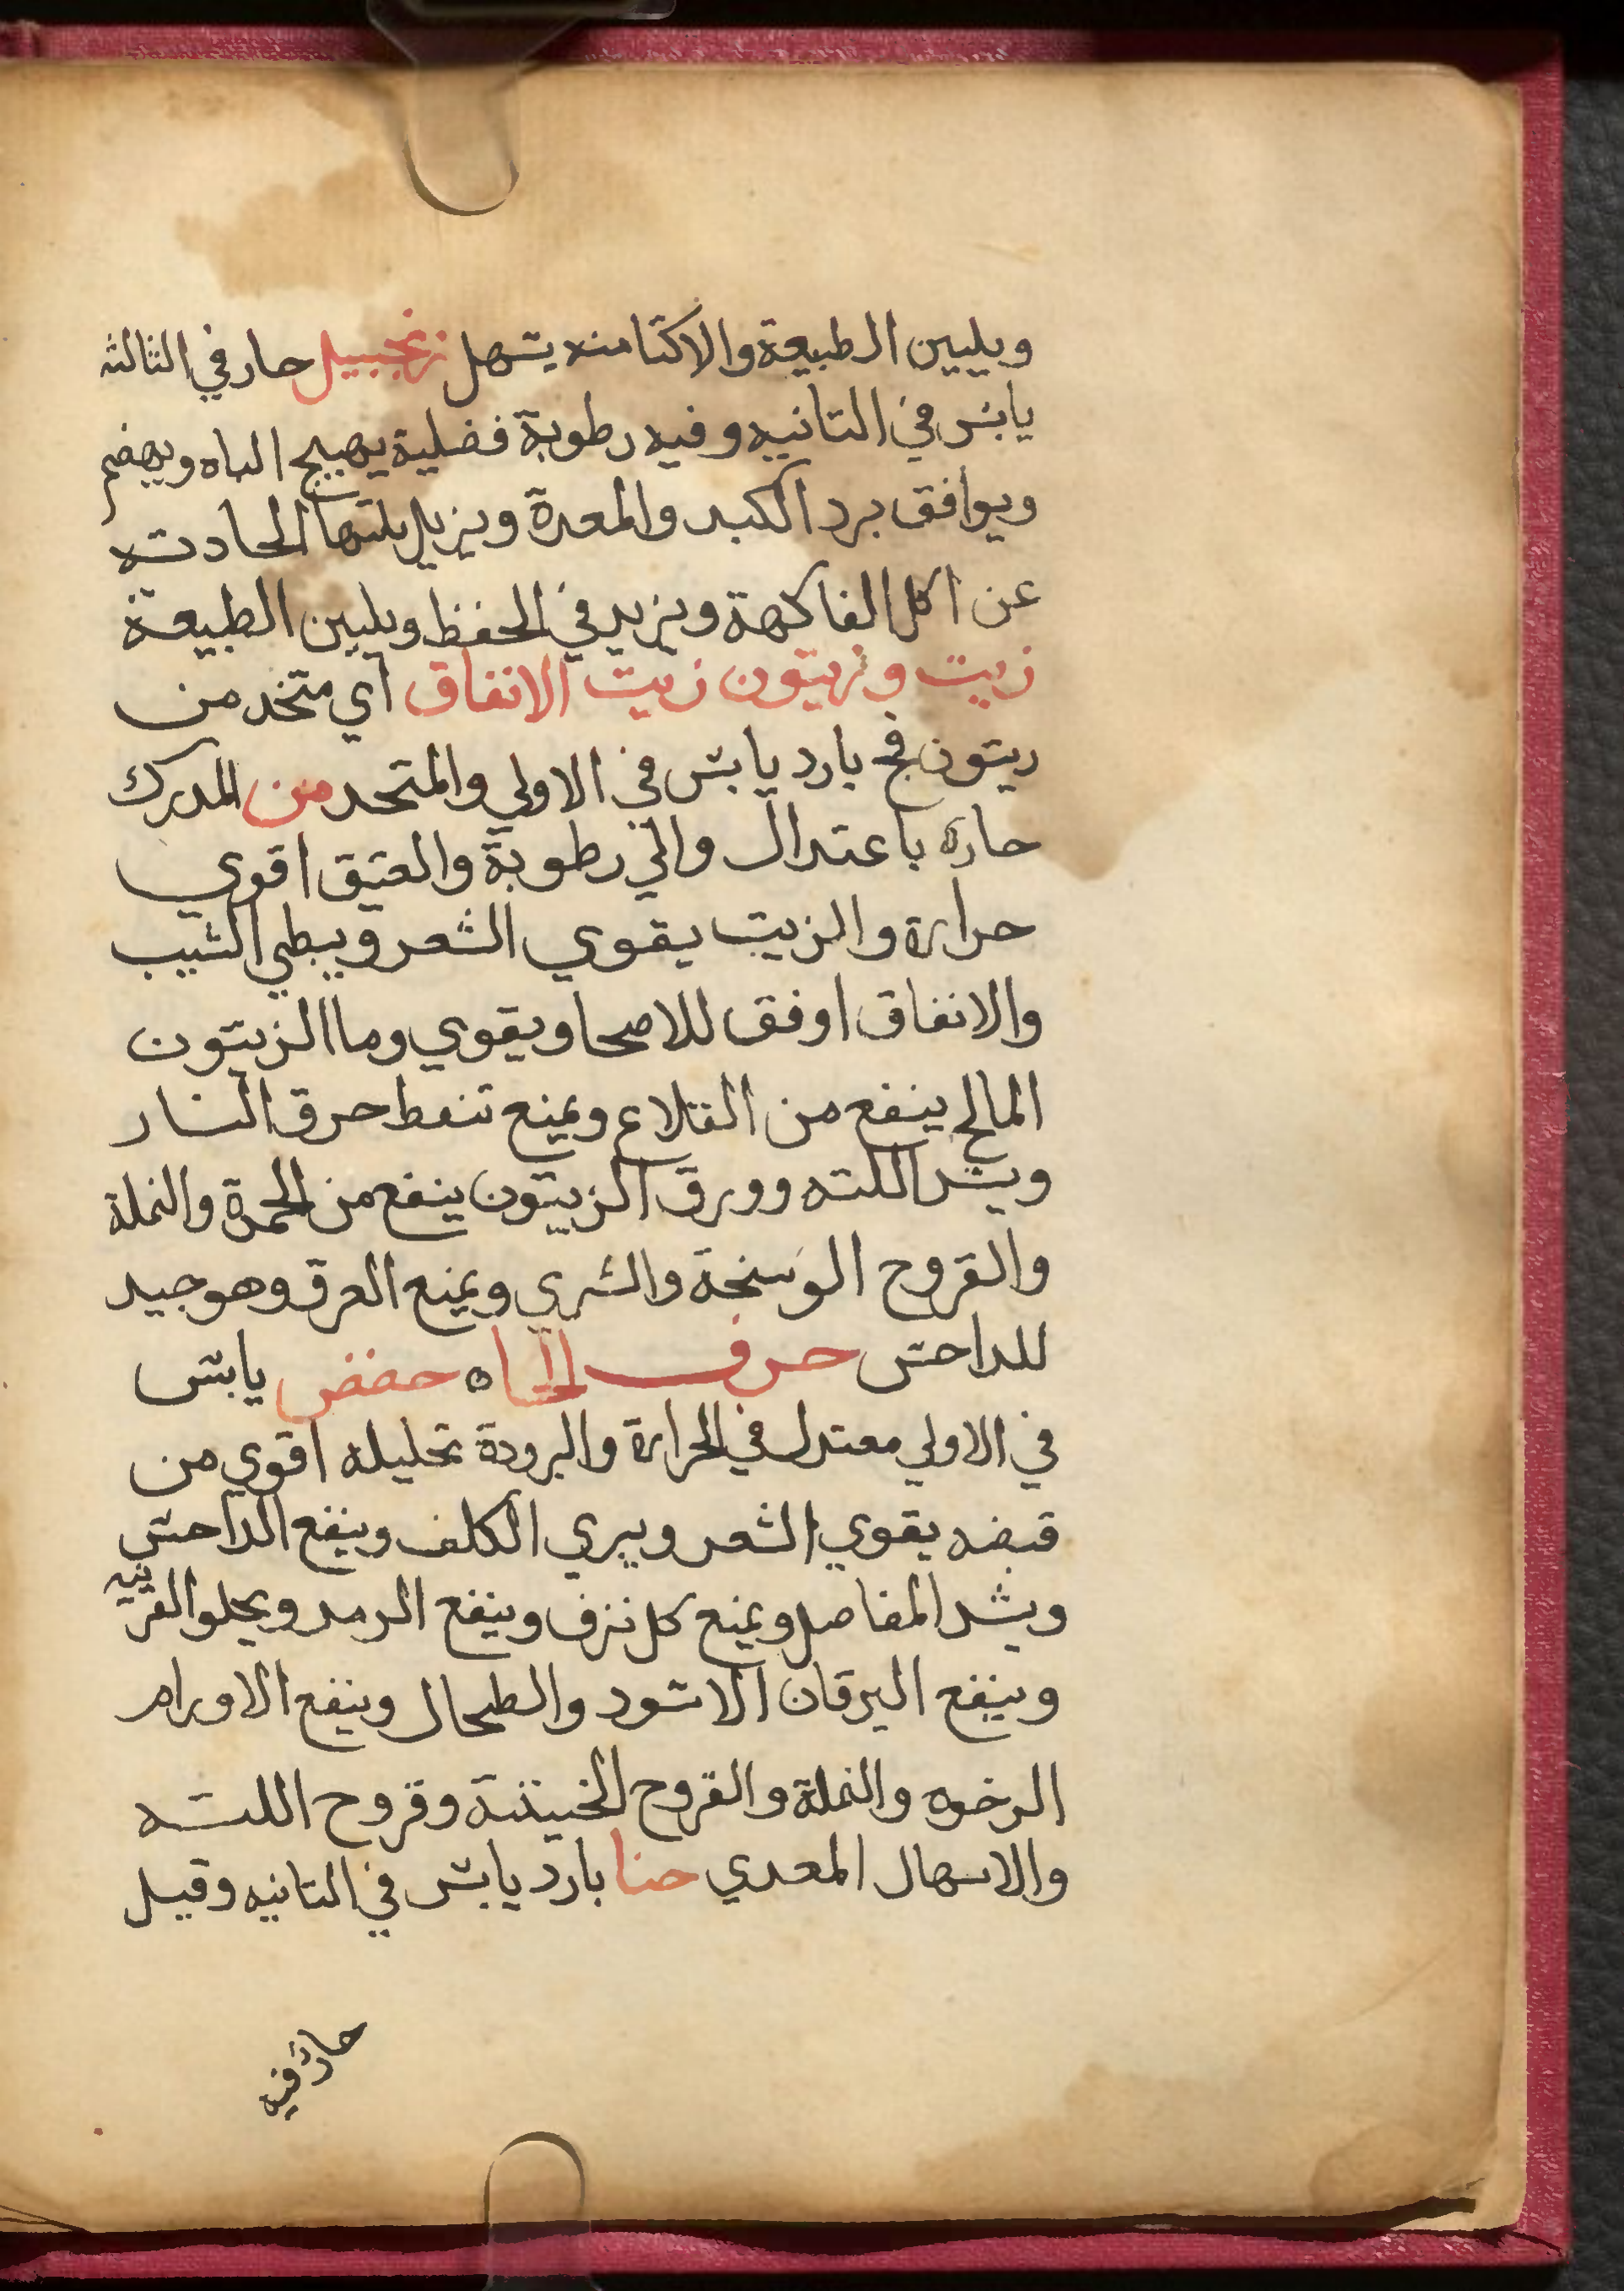 ويليين الطبيعة والاكثا منه يسهل زنجبيل حار في الثالثه
يابس في الثانيه وفيه رطوبة فضلية يهيج الباه ويهضم
ويوافق برد الكبد والمعدة ويزيل بلتها الحادثه
عن اكل الفاكهة ويزيد في الحفظ ويليين الطبيعة
زيت وزيتون زيت الانفاق اي متخد من
زيتون فج بارد يابس في الاولي والمتخد من المدرك
حاره باعتدال والي رطوبة والعتيق اقوي
حرارة والزيت يقوي الشعر ويبطي الشيب
والانفاق اوفق للاصحا ويقوي وما الزيتون
المالح ينفع من القلاع ويمنع تنفط حرق النار
ويشد اللثه وورق الزيتون ينفع من الحمرة والنملة
والقروح الوسخة والشري ويمنع العرق وهو جيد
للداحس حرف الماه حضض يابس
في الاولي معتدل في الحرارة والبرودة تحليله اقوي من
قبضه يقوي الشعر ويبري الكلف وينفع الداحس
ويشد المفاصل ويمنع كل نزف وينفع الرمد ويجلو القرنيه
وينفع اليرقان الاسود والطحال وينفع الاورام
الرخوه والنملة والقروح الخبيثة وقروح اللثه
والاسهال المعدي حنا بارد يابس في الثانيه وقيل
حار فيه